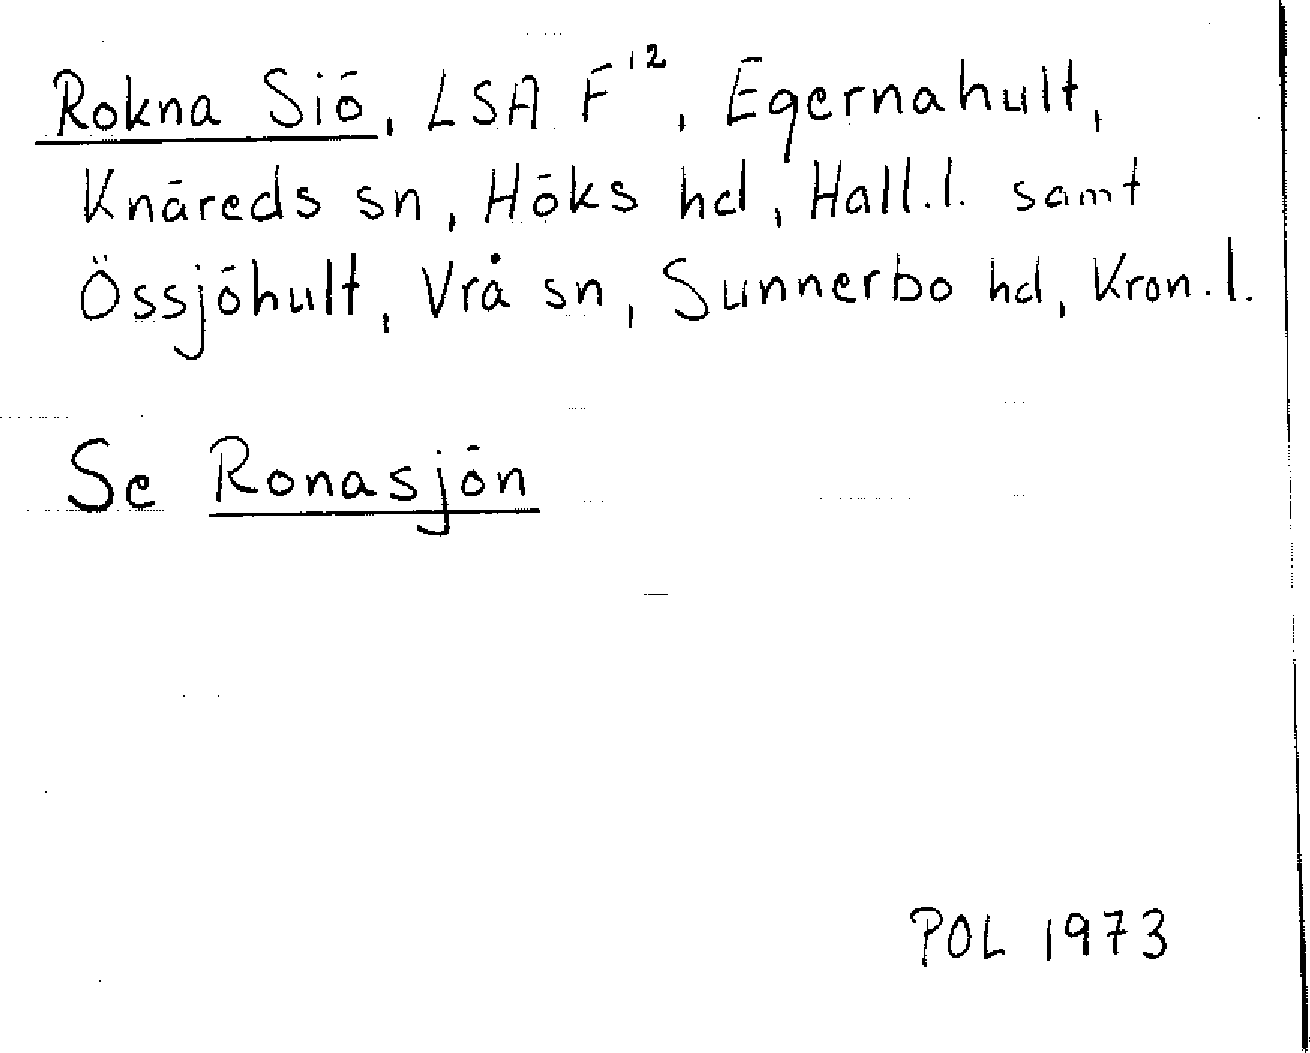 Rokna Siö, LSA F¹², Egernahult,
Knäreds sn, Höks hd, Hall.l. samt
Össjöhult, Vrå sn, Sunnerbo hd, Kron.l.
Se Ronasjön
POL 1973